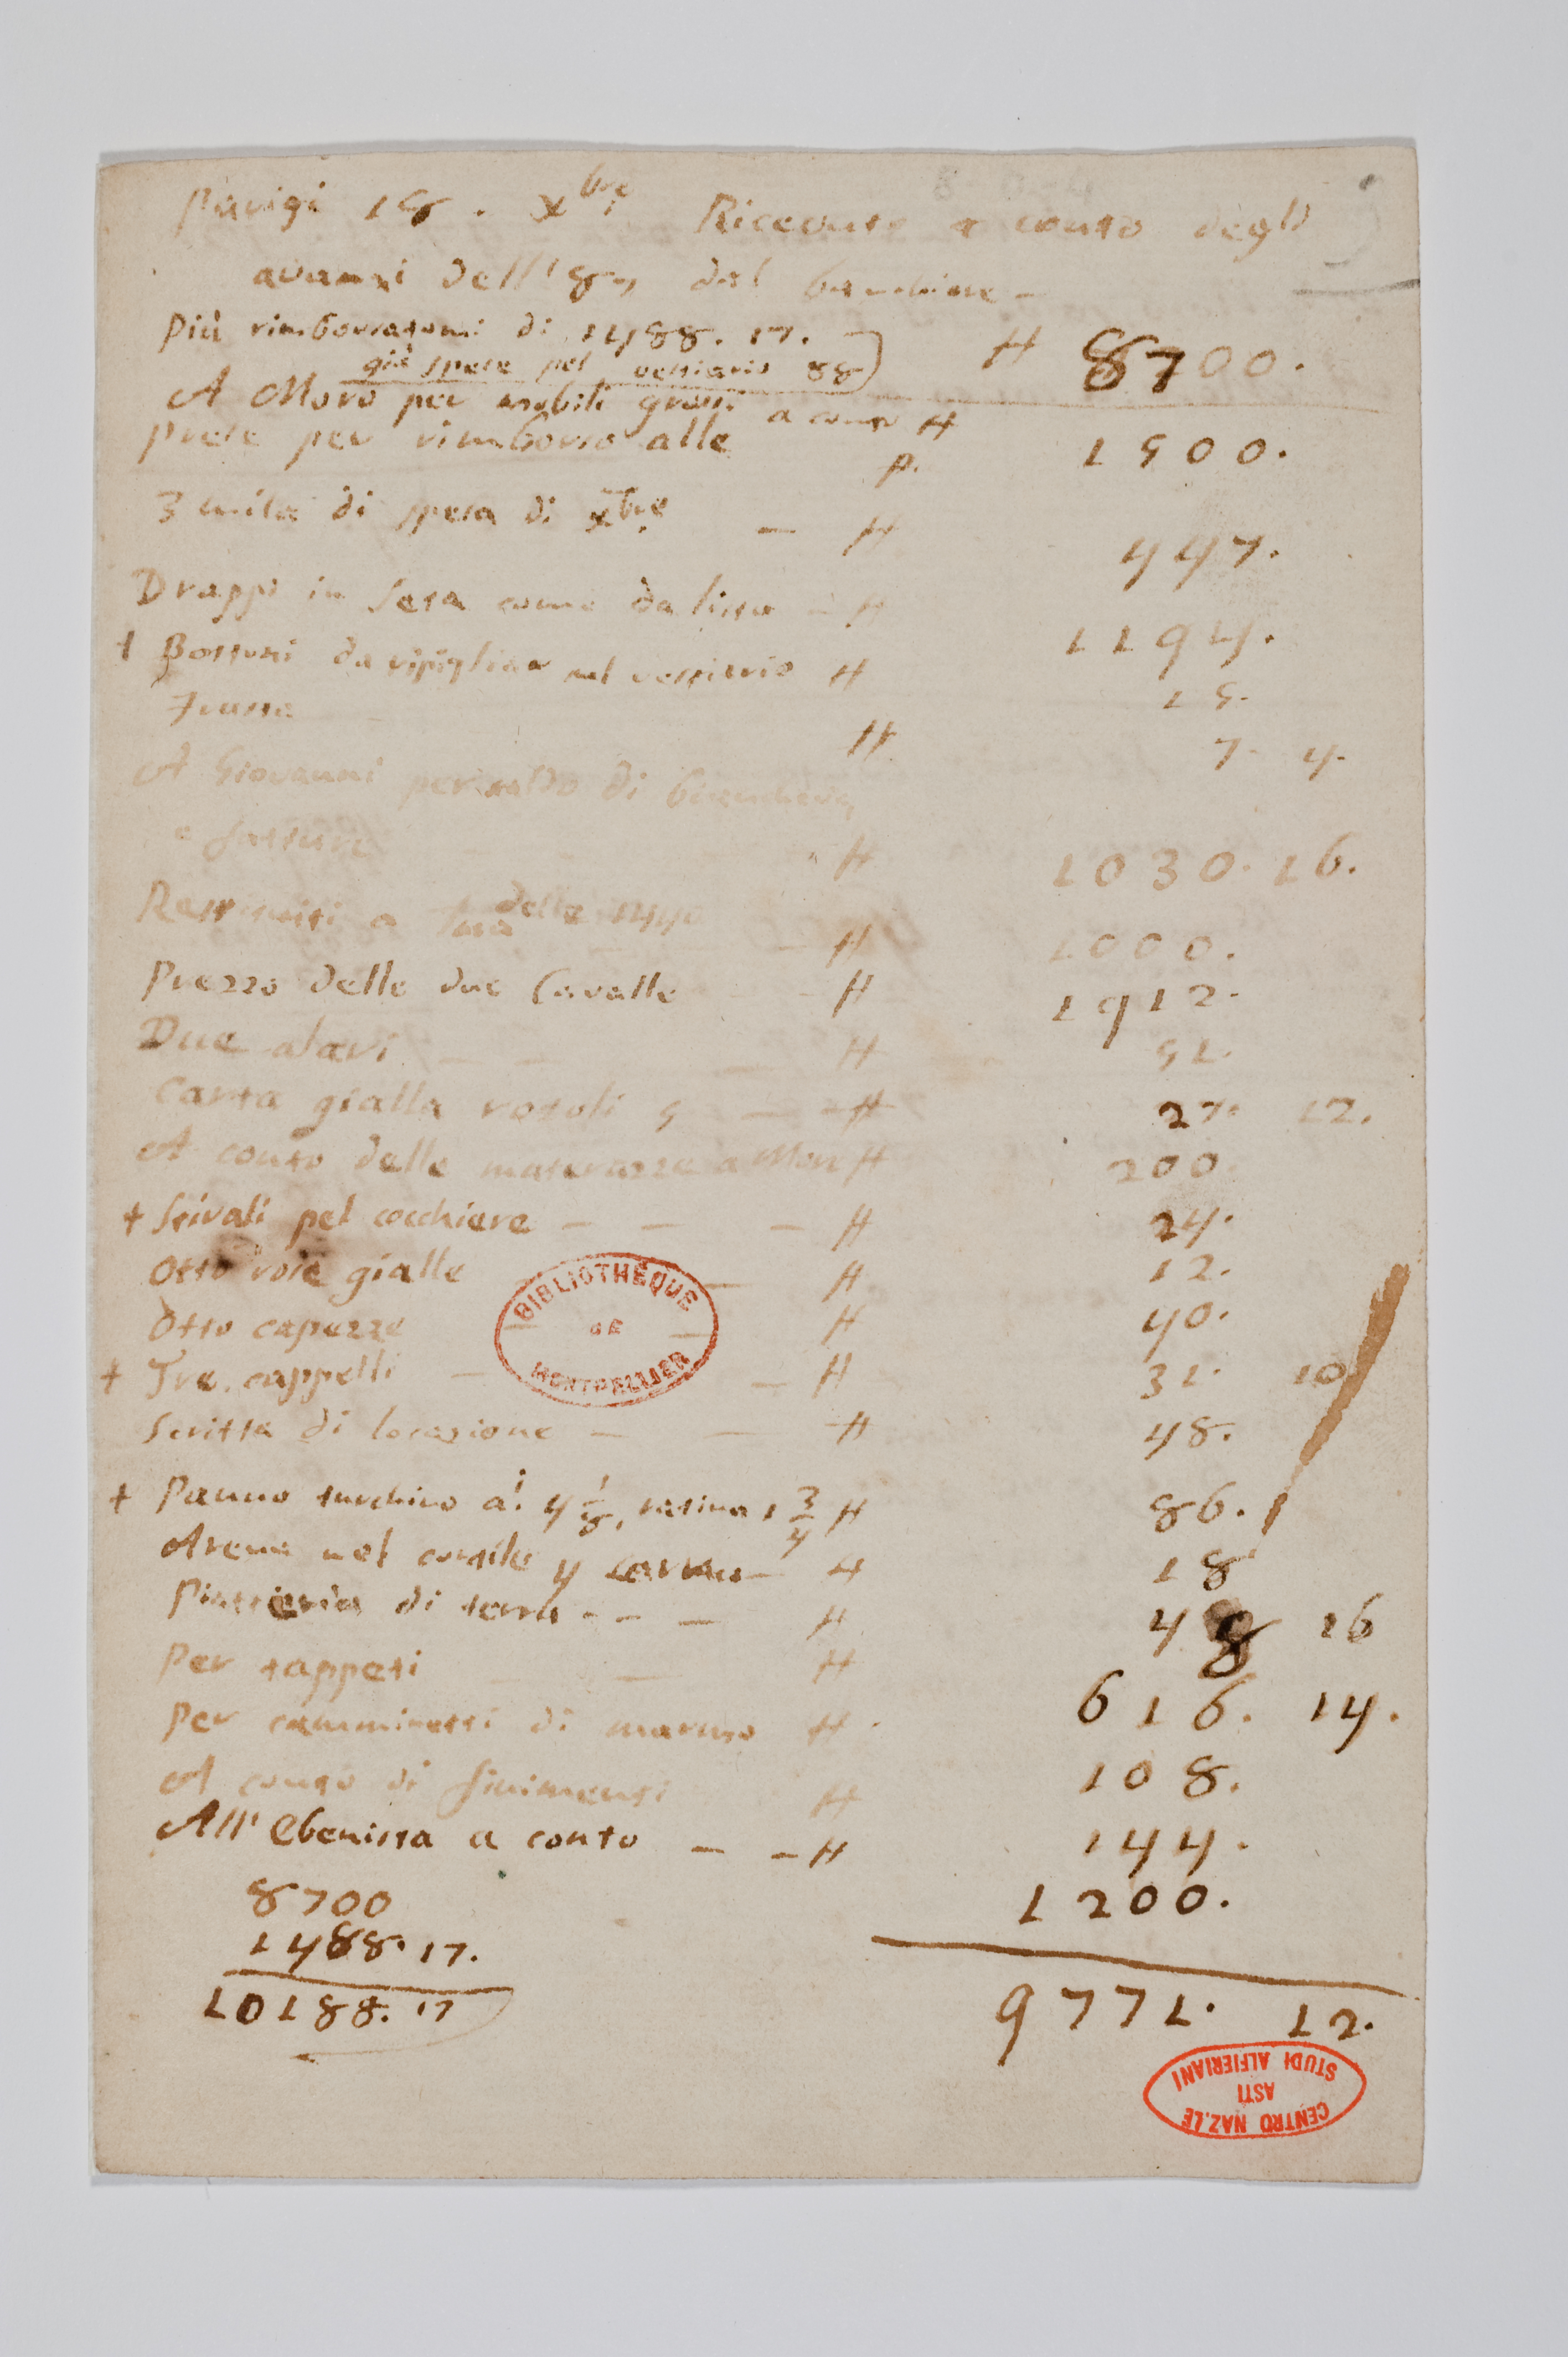 Parigi 18. Xbre. Ricevute a conto degli
avanzi dell'87 dal banchiere –
Più rimborsatomi di 1488. 17.
già spese pel vestiario 88) H 8700.
A Moro per mobili grossi a conto H 1500.
Prese per rimborso alle p.
3 mila di spesa di Xbre – H 447.
Drappi in seta come da lista – H 1194.
+ Bottoni da ripigliar sul vestiario H 15.
Frusta H 7. 4.
A Giovanni per saldo di biancheria,
e fatture H 1030. 16.
Restituiti a delle 1440 – H 1000.
Prezzo delle due Cavalle – H 1912.
Due alari – – – H 51.
Carta gialla rotoli 5 – – H 27. 12.
A conto delle materazze a Moro H 200
+ Stivali pel cocchiere – – – H 24.
Otto gialle – H 12.
Otto capezze – – H 40.
+ Tre cappelli – – H 31. 10.
Scritta di locazione – – H 48.
+ Panno turchino a! 4 1/8, ratina 1 3/4 H 86. 1
Arena nel cortile 4 – H 18
Piatteria di terra – – – H 48 16
Per tappeti – H 616. 14.
Per camminetti di marmo H 108.
A conto di finimenti H 144.
All'Ebenista a conto – – H 1200.
8700
1488. 17.
10188. 17
9771. 12.
BIBLIOTHÈQUE
DE
MONTPELLIER
CENTRO NAZ.LE
ASTI
STUDI ALFIERIANI